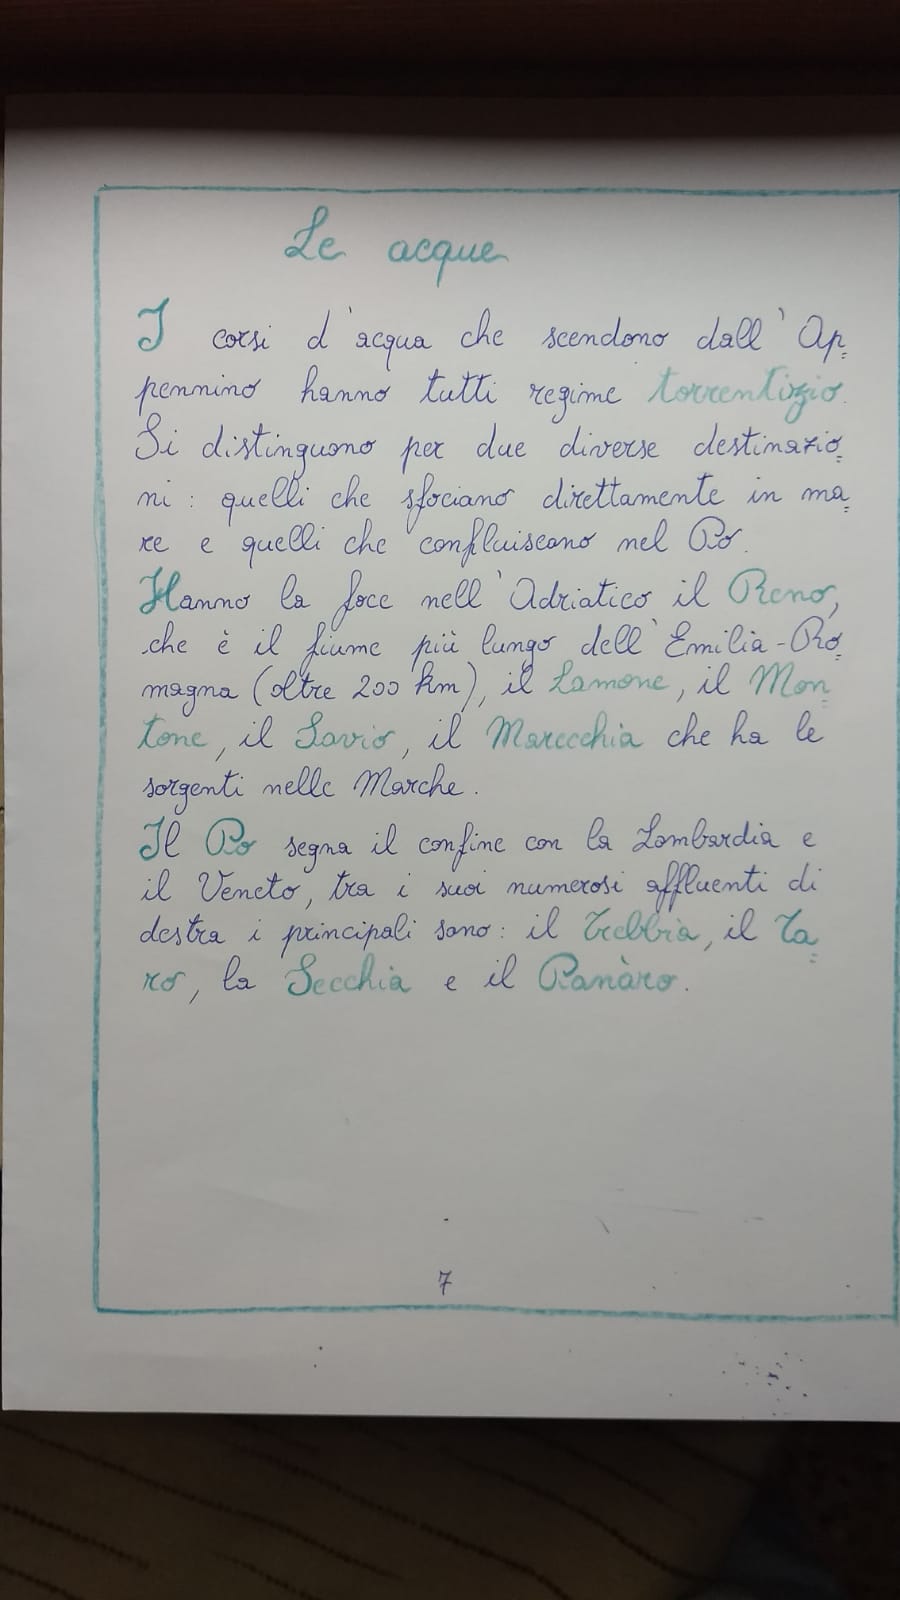 Le acque
I corsi d'acqua che scendono dall'Ap=
pennino hanno tutti regime torrentizio.
Si distinguono per due diverse destinazio=
ni: quelli che sfociano direttamente in ma=
re e quelli che confluiscono nel Po.
Hanno la foce nell'Adriatico il Reno,
che è il fiume più lungo dell'Emilia-Ro=
magna (oltre 200 km), il Lamone, il Mon=
tone, il Savio, il Marecchia che ha le
sorgenti nelle Marche.
Il Po segna il confine con la Lombardia e
il Veneto, tra i suoi numerosi affluenti di
destra i principali sono: il Trebbia, il Ta=
ro, la Secchia e il Panàro.
7